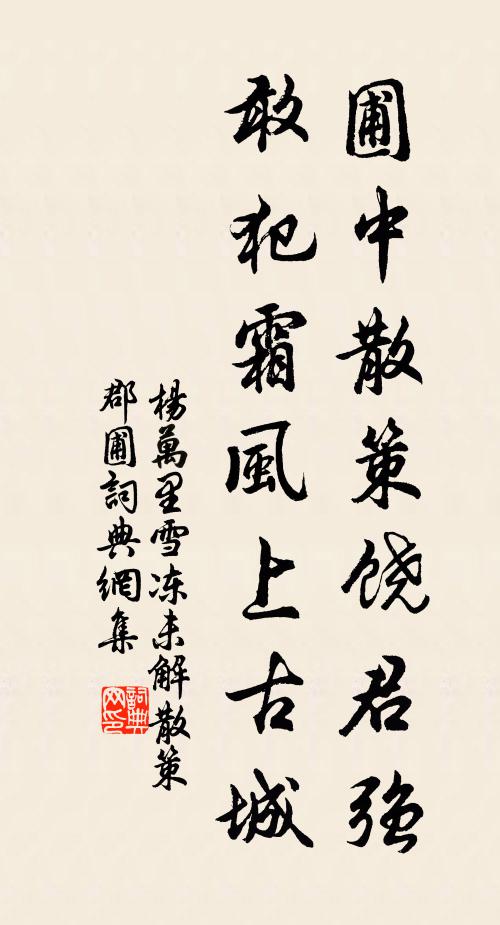 圃中散策饶君強
敢犯霜風上古城
楊萬里雪冻未解散策
郡圃詞典網集
詞典網印